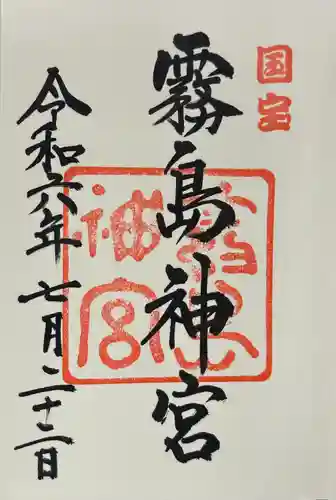 国宝
霧島神宮
霧島
神宮
令和六年七月二十二日